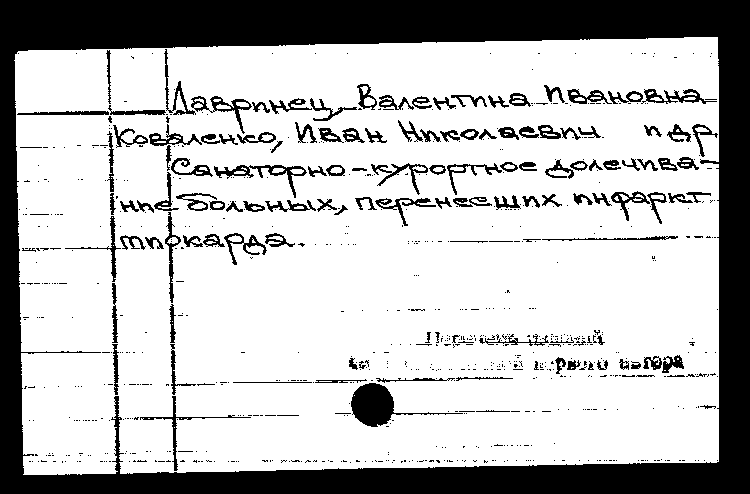 Лавринец, Валентина Ивановна
Коваленко, Иван Николаевич и др.
Санаторно-курортное долечива-
ние больных, перенесших инфаркт
миокарда.
Перечень изданий
первого автора